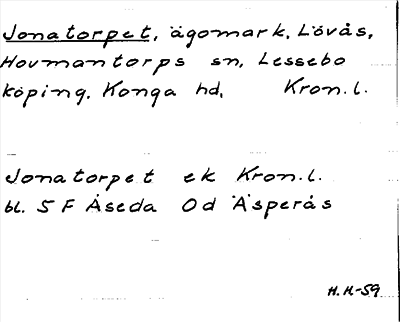 Jonatorpet, ägomark, Lövås,
Hovmantorps sn, Lessebo
köping. Konga hd, Kron.l.
Jonatorpet ek Kron.l.
bl. 5 F Åseda Od Äsperås
H.H-59